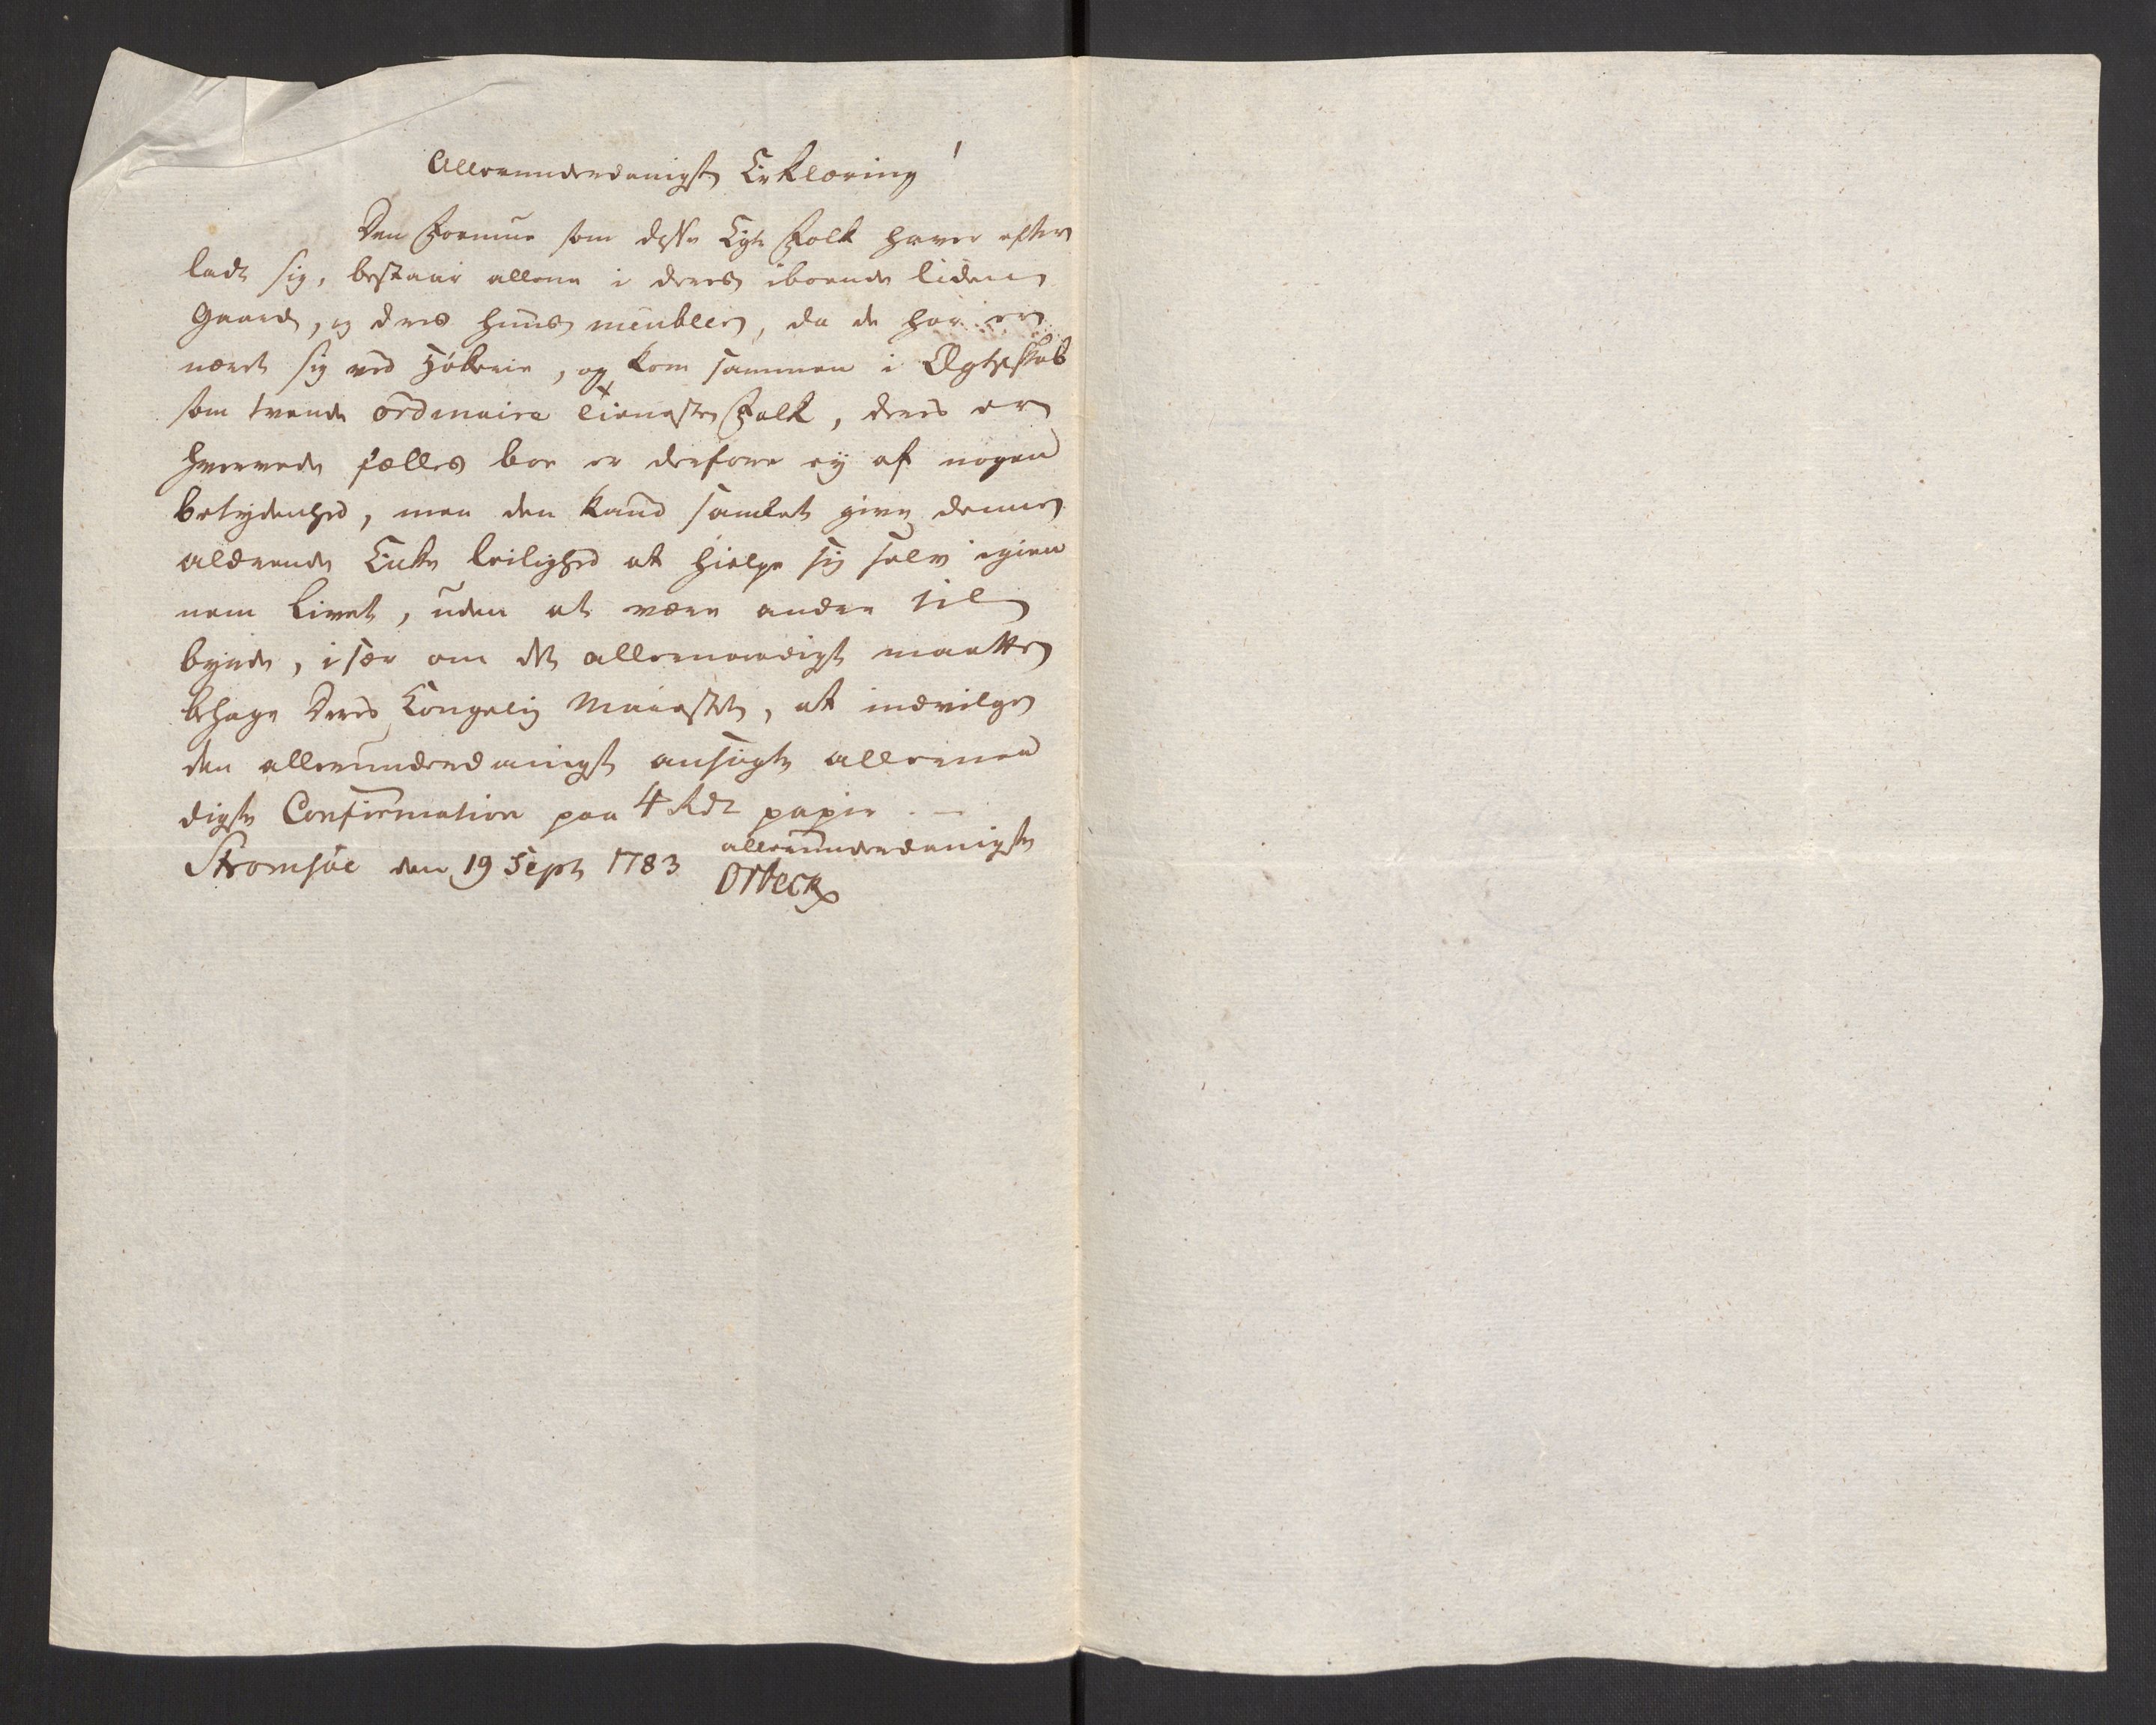 Allerunderdanigst Erklæring!
Den Formue som disse Egte Folk haver efter
ladt sig, bestaar allene i deres iboende liden
Gaard, og deres huus meubler, da de har er
næret sig ved Hökerie, og kom sammen i Ægteskab
som tvende ordinaire tieneste Folk, deres er
hvervede fælles boe er derfore ey af nogen
betydenhed, men den kand samlet give denne
aldrende Enke leilighed at hielpe sig selv igien
nem Livet, uden at være andre til
byrde, især om det allernaadigst maatte
behage Deres Kongelig Maiestet, at indvilge
den allerunderdanigst ansøgte allernaa
digste Confirmation paa 4 Rdr papir. –
Stromsöe den 19 Sept 1783 allerunderdanigste